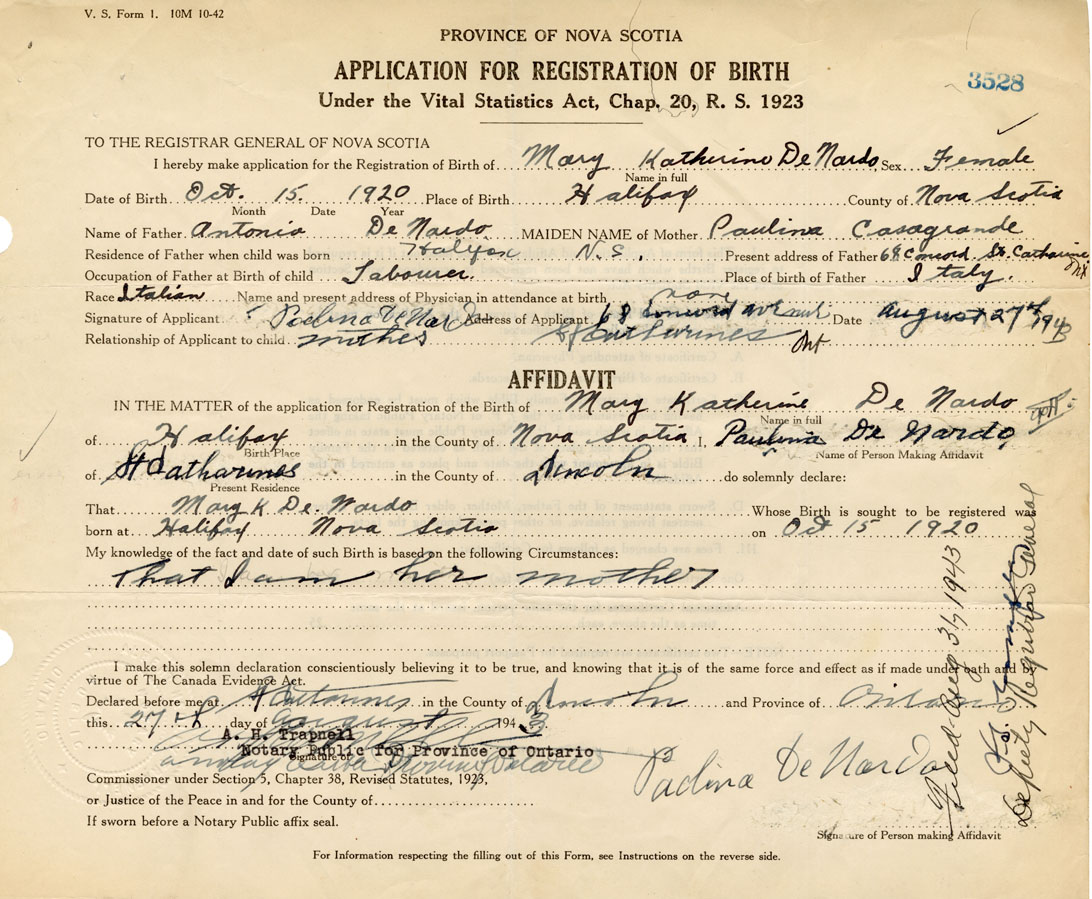 V. S. Form 1. 10M 10-42
PROVINCE OF NOVA SCOTIA
APPLICATION FOR REGISTRATION OF BIRTH
3528
Under the Vital Statistics Act, Chap. 20, R. S. 1923
TO THE REGISTRAR GENERAL OF NOVA SCOTIA
I hereby make application for the Registration of Birth of Mary Katherine De Nardo, Sex Female
Name in full
Date of Birth Oct. 15. 1920 Place of Birth Halifax County of Nova Scotia
Month Date Year
Name of Father Antonio De Nardo MAIDEN NAME of Mother Paulina Casagrande
Residence of Father when child was born Halifax N.S. Present address of Father 68 Concord St. Catharines Ont
Occupation of Father at Birth of child Labourer. Place of birth of Father Italy.
Race Italian Name and present address of Physician in attendance at birth none
Signature of Applicant Paolina De Nardo Address of Applicant 68 Concord ave Date August 27th 1943
Relationship of Applicant to child mother St Catharines Ont
AFFIDAVIT
IN THE MATTER of the application for Registration of the Birth of Mary Katherine De Nardo
Name in full
of Halifax in the County of Nova Scotia I, Paulina De Nardo,
Birth Place Name of Person Making Affidavit
of St Catharines in the County of Lincoln do solemnly declare:
Present Residence
That Mary K De. Nardo Whose Birth is sought to be registered was
born at Halifax Nova Scotia on Oct 15 1920
My knowledge of the fact and date of such Birth is based on the following Circumstances:
That I am her mother
I make this solemn declaration conscientiously believing it to be true, and knowing that it is of the same force and effect as if made under oath and by
virtue of The Canada Evidence Act.
Declared before me at St Catharines in the County of Lincoln and Province of Ontario
this 27th day of August 1943
A. H. Trapnell
Notary Public for Province of Ontario
Signature of
Commissioner under Section 5, Chapter 38, Revised Statutes, 1923,
or Justice of the Peace in and for the County of
If sworn before a Notary Public affix seal.
Paolina De Nardo
Signature of Person making Affidavit
Filed Aug 31, 1943
Deputy Registrar General
For Information respecting the filling out of this Form, see Instructions on the reverse side.